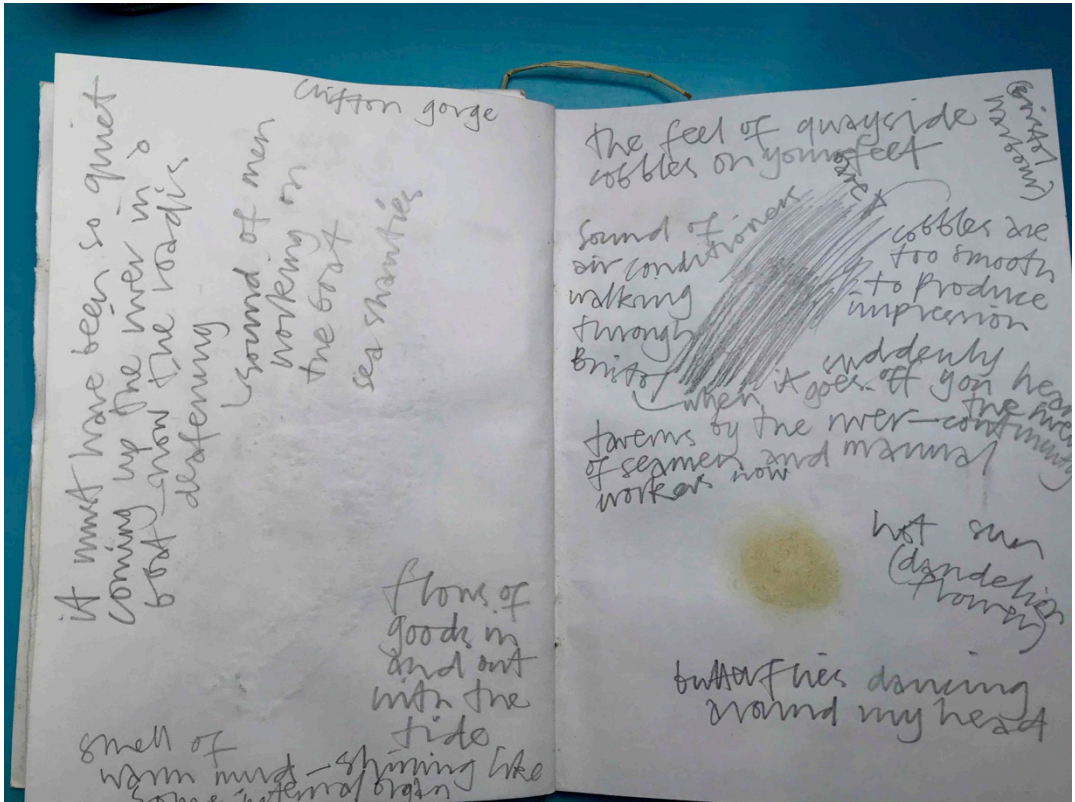 Clifton gorge
it must have been so quiet
coming up the river in a
boat – now the road is
deafening
sound of men
working on
the boat
sea shanties
flows of
goods in
and out
with the
tide
smell of
warm mud – shining like
some internal organ
(Bristol
harbour)
the feel of quayside
cobbles on your feet
sound of
air conditioners
walking
through
Bristol
cobbles are
too smooth
to produce
impression
when it goes off you suddenly hear
the river
taverns by the river – continuity
of seamen and manual
workers now
hot sun
(dandelion
flower)
butterflies dancing
around my head